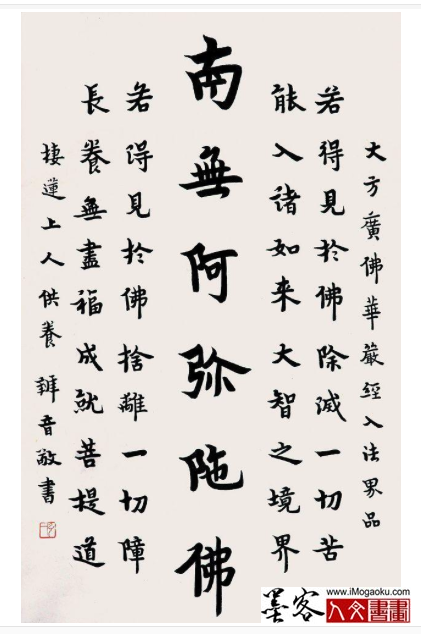 大方廣佛華嚴經入法界品
若得見於佛除滅一切苦
能入諸如来大智之境界
南無阿弥陁佛
若得見於佛捨離一切障
長養無盡福成就菩提道
棲蓮上人供養 辨音敬書
墨客
www.iMogaoku.com
人文書畫